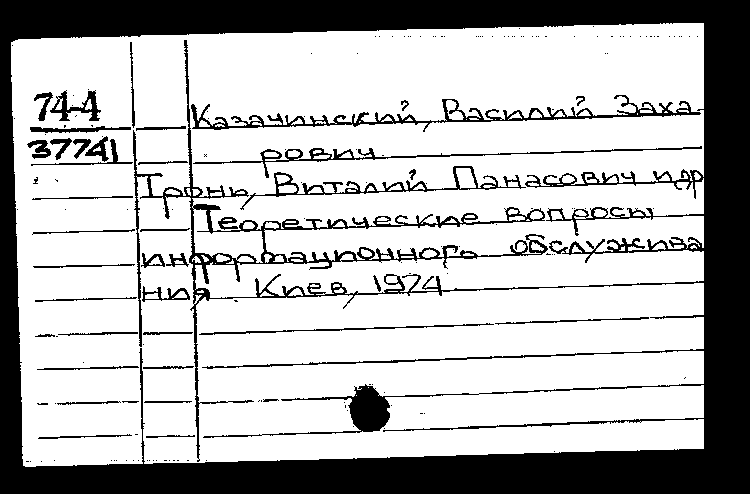 74-4
37741
Казачинский, Василий Заха-
рович
Тронь, Виталий Панасович и др
Теоретические вопросы
информационного обслужива
ния Киев, 1974